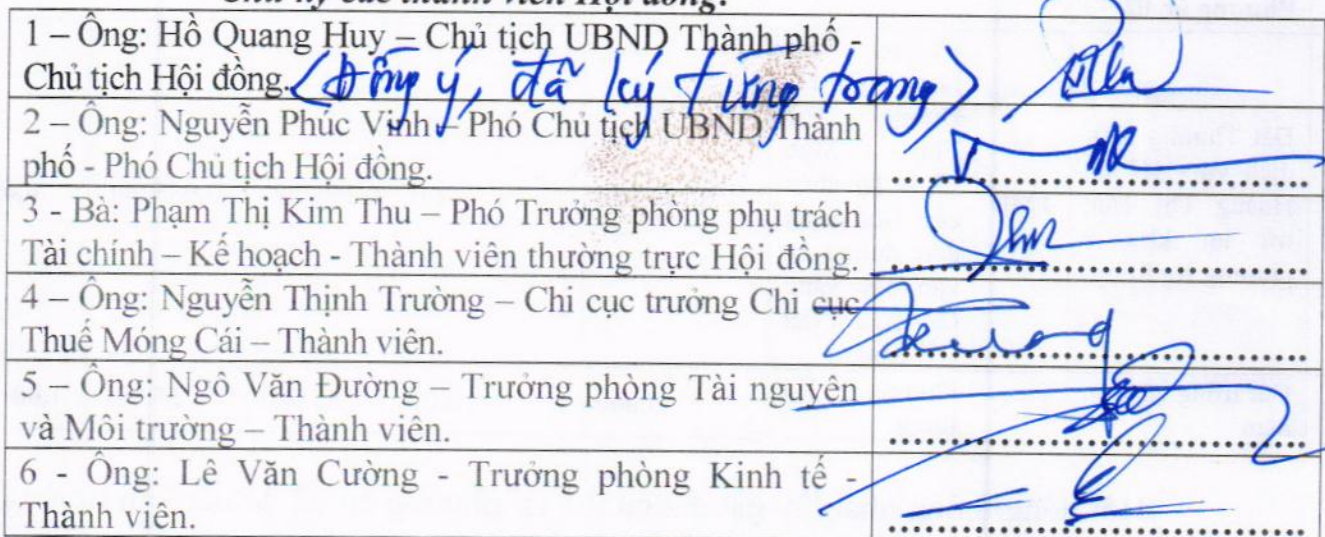 Chữ ký các thành viên Hội đồng:
1 – Ông: Hồ Quang Huy – Chủ tịch UBND Thành phố -
Chủ tịch Hội đồng. <Đồng ý, đã ký từng trang>
2 – Ông: Nguyễn Phúc Vinh – Phó Chủ tịch UBND Thành
phố - Phó Chủ tịch Hội đồng.
3 - Bà: Phạm Thị Kim Thu – Phó Trưởng phòng phụ trách
Tài chính – Kế hoạch - Thành viên thường trực Hội đồng.
4 – Ông: Nguyễn Thịnh Trường – Chi cục trưởng Chi cục
Thuế Móng Cái – Thành viên.
5 – Ông: Ngô Văn Đường – Trưởng phòng Tài nguyên
và Môi trường – Thành viên.
6 - Ông: Lê Văn Cường - Trưởng phòng Kinh tế -
Thành viên.